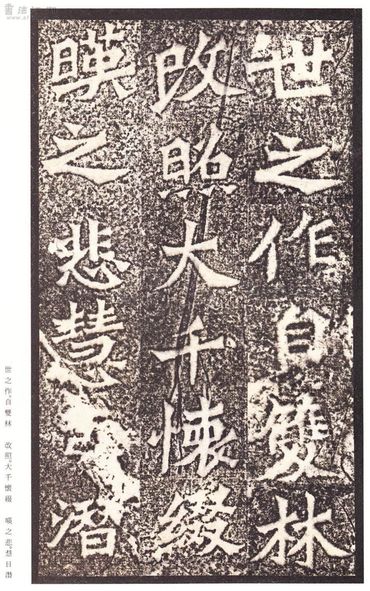 世之作自雙林
改照大千懷綴
暎之悲慧潛
世之作。自雙林 改照。大千懷綴 暎之悲。慧日潛